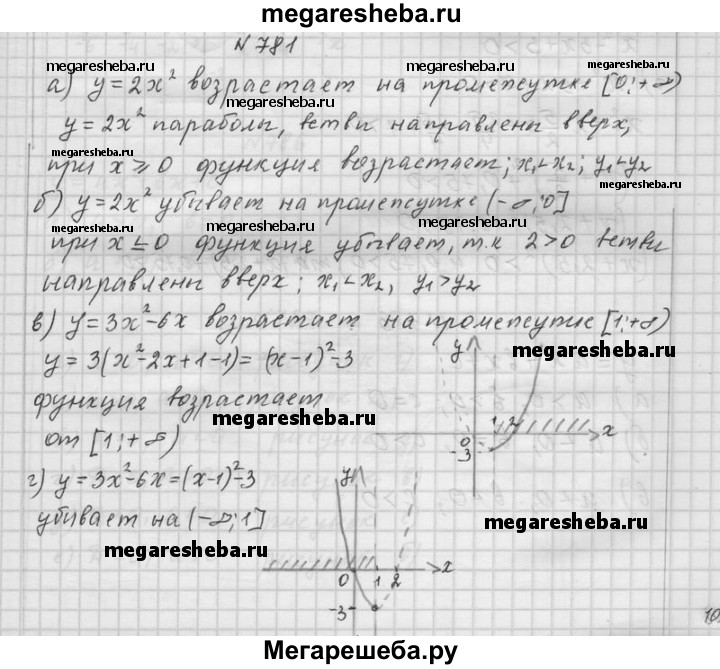 megaresheba.ru
N 781
megaresheba.ru megaresheba.ru
а) y = 2x² возрастает на промежутке [0; +∞)
megaresheba.ru
y = 2x² параболы, ветви направлены вверх,
при x ⩾ 0 функция возрастает; x₁<x₂; y₁<y₂
megaresheba.ru
б) y = 2x² убывает на промежутке (-∞; 0]
megaresheba.ru
при x ≤ 0 функция убывает, т.к 2>0 ветви
направлены вверх; x₁<x₂, y₁>y₂
в) y = 3x²-6x возрастает на промежутке [1; +∞)
y = 3(x²-2x+1-1) = (x-1)²-3
y
megaresheba.ru
функция возрастает
megaresheba.ru
1 2 x
от [1; +∞)
0
-3
г) y = 3x²-6x = (x-1)²-3
y
убывает на (-∞; 1]
megaresheba.ru
megaresheba.ru
0 1 2 x
-3
10
Мегарешеба.ру